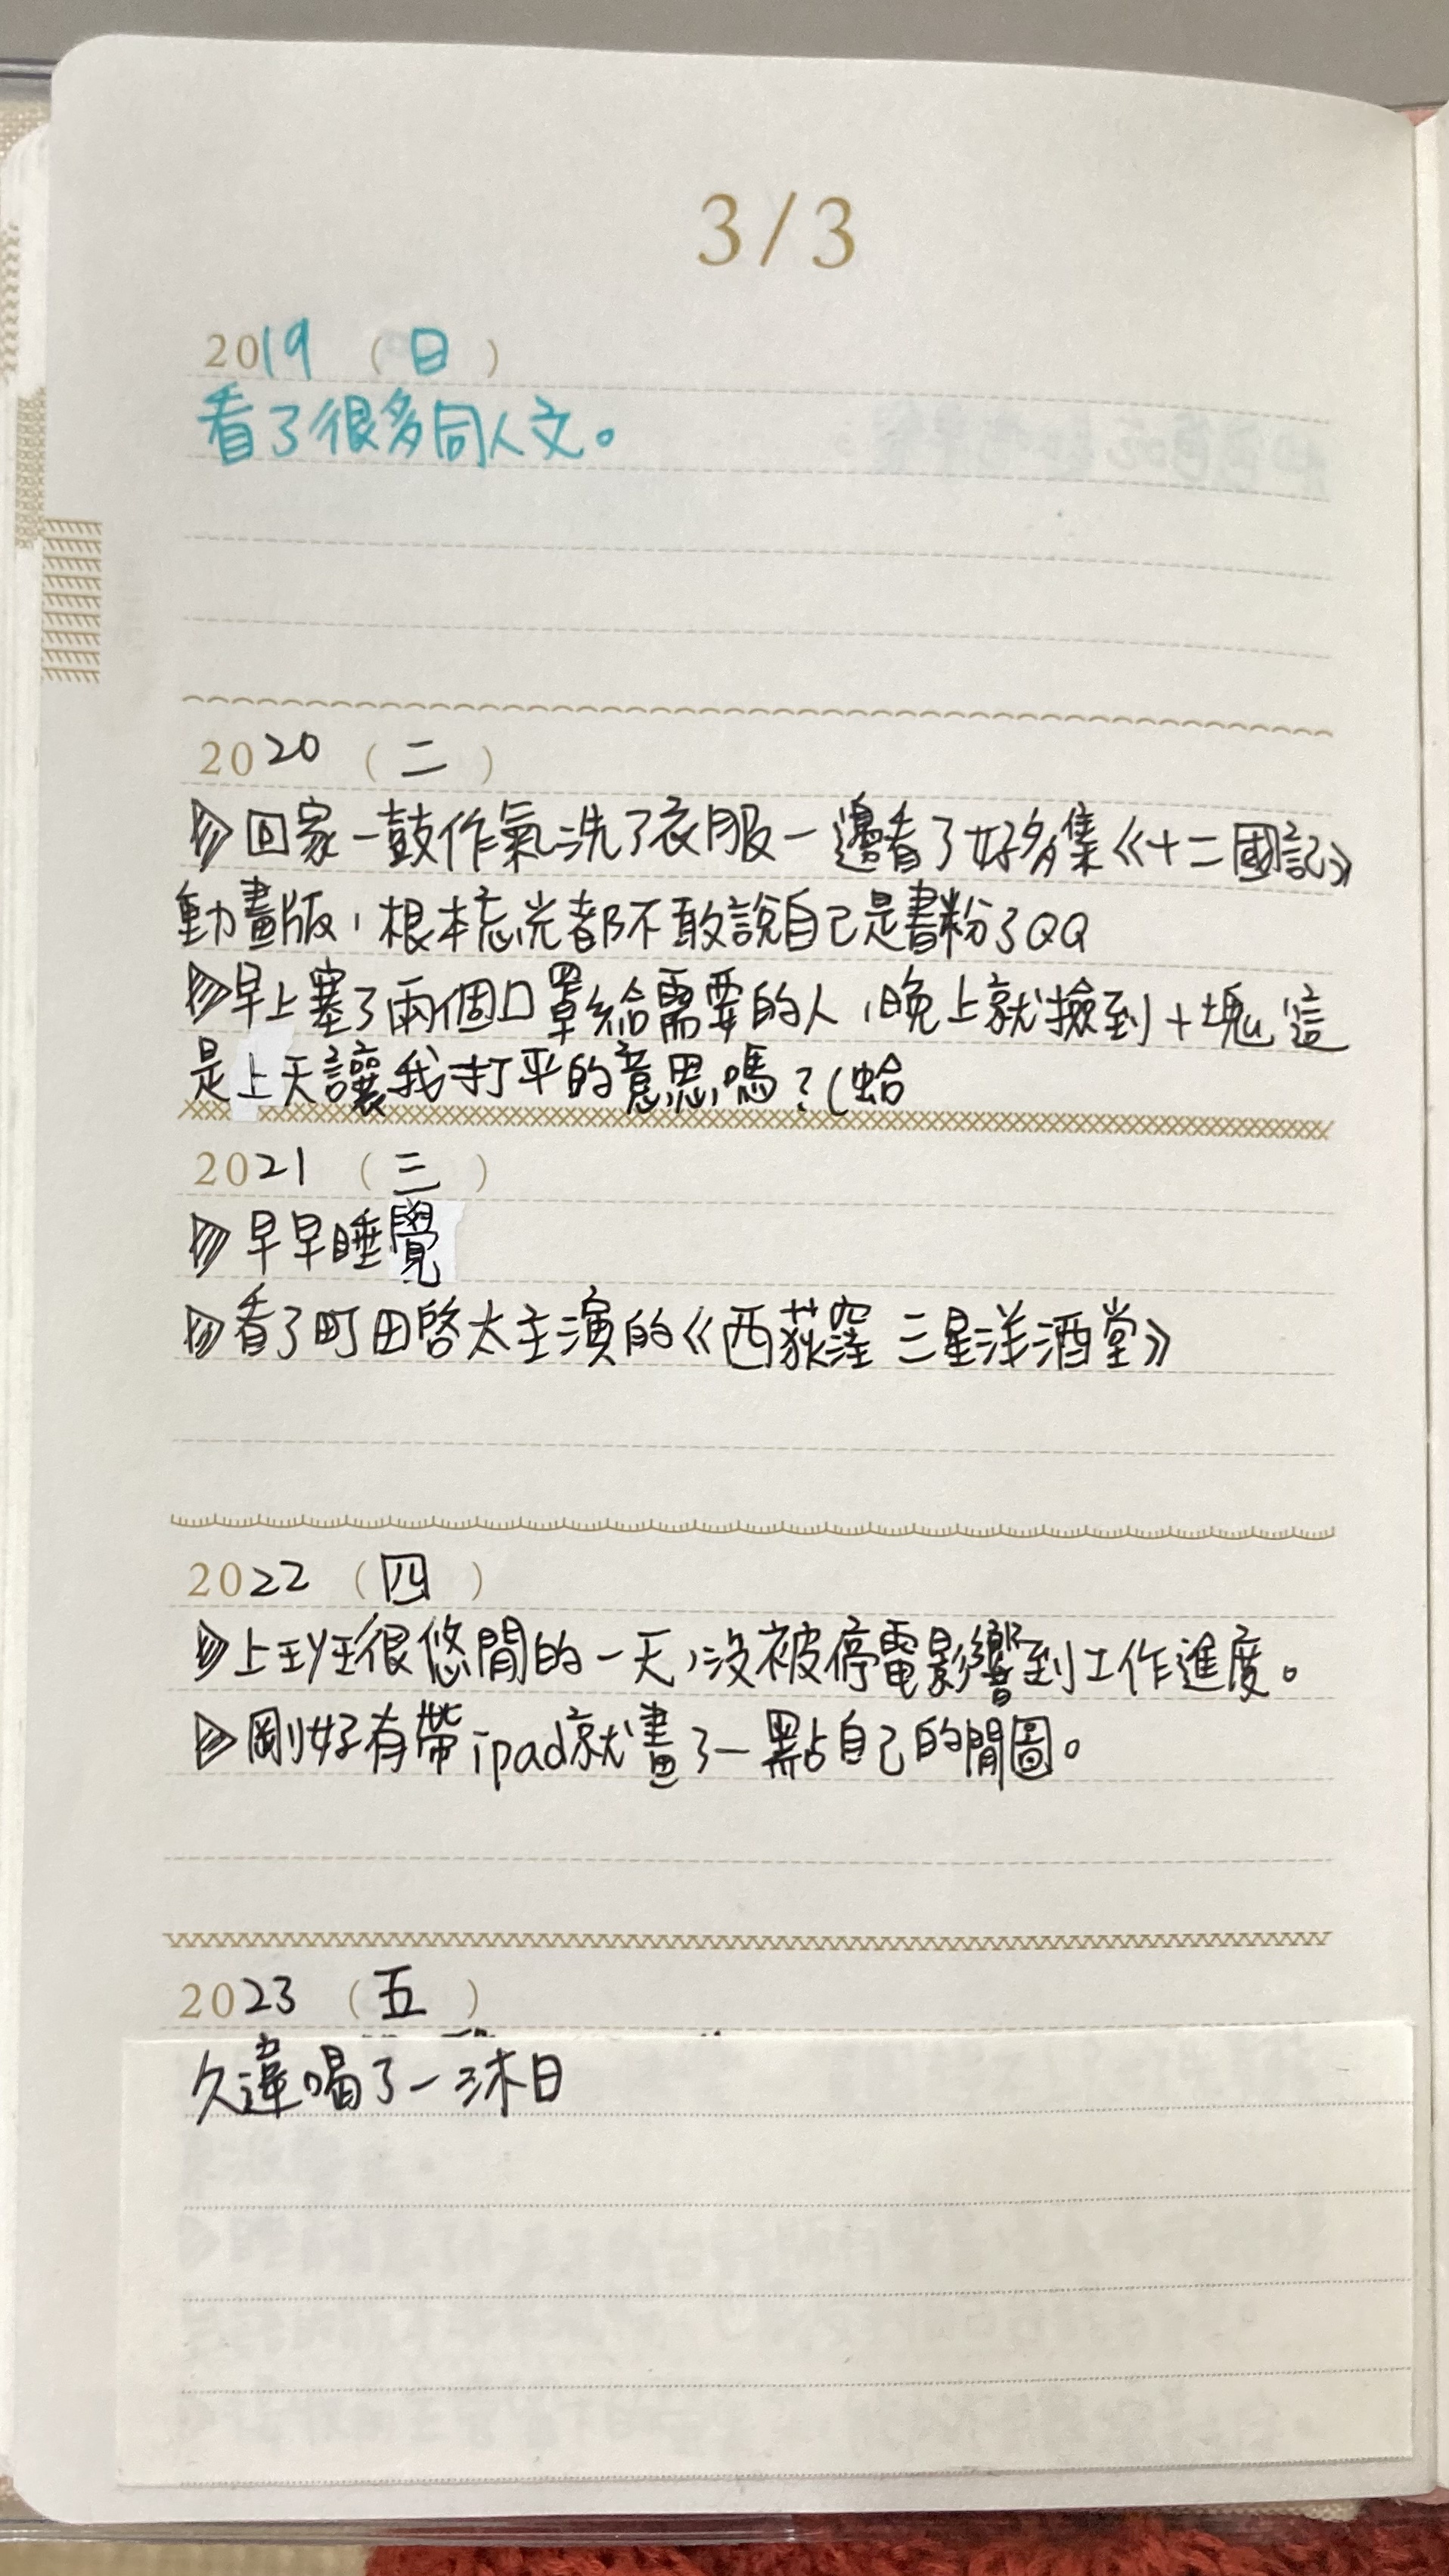 3/3
2019 (日)
看了很多同人文。
2020 (二)
回家一鼓作氣洗了衣服一邊看了好多集《十二國記》
動畫版,根本忘光都不敢說自己是書粉了QQ
早上塞了兩個口罩給需要的人,晚上就撿到十塊,這
是上天讓我打平的意思嗎?(蛤
2021 (三)
早早睡覺
看了町田啓太主演的《西荻窪 三星洋酒堂》
2022 (四)
上班很悠閒的一天,沒被停電影響到工作進度。
剛好有帶ipad就畫了一點自己的閒圖。
2023 (五)
久違喝了一沐日